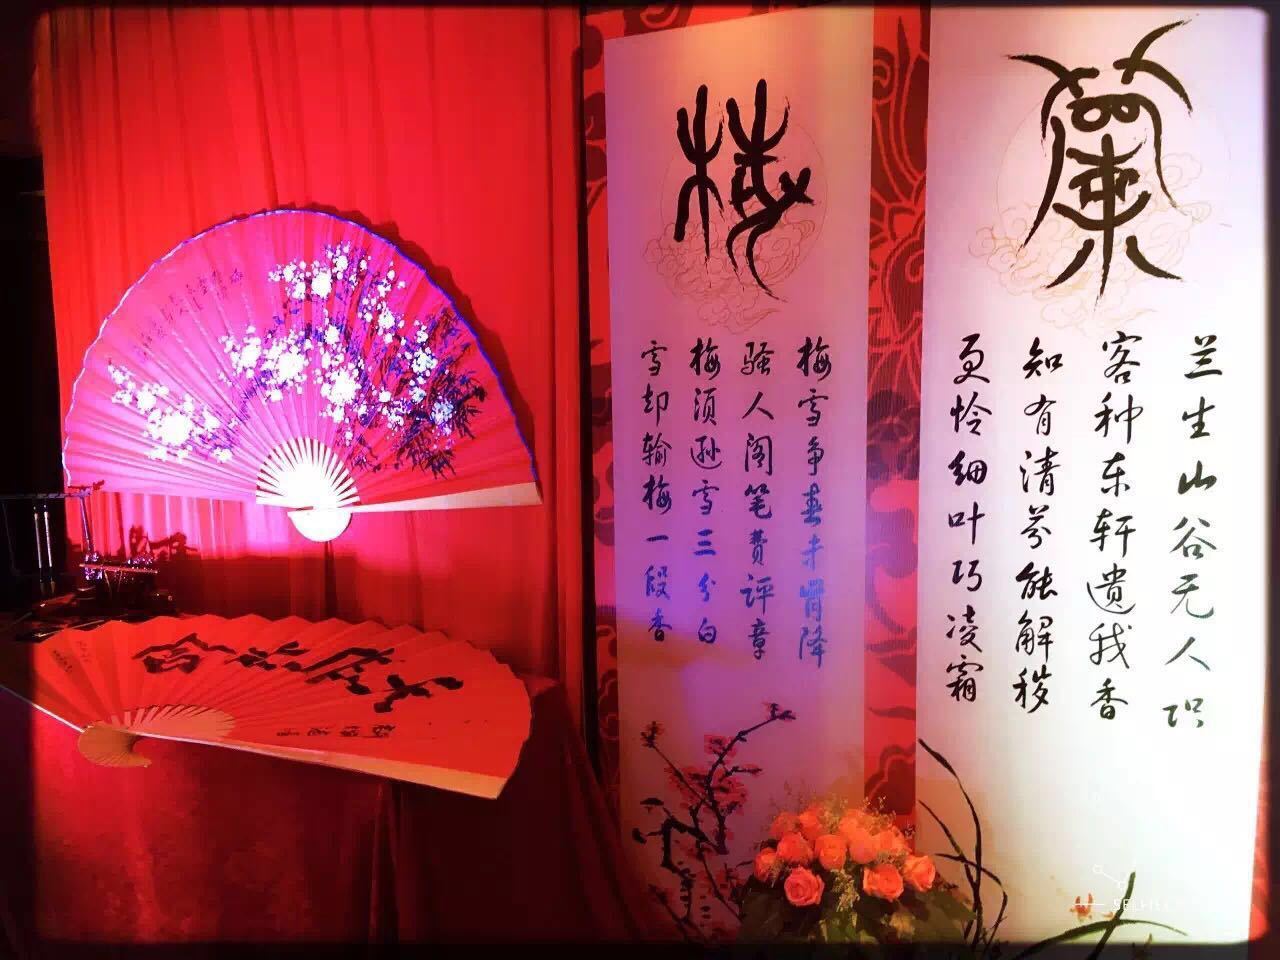 蘭
兰生山谷无人识
客种东轩遗我香
知有清芬能解秽
更怜细叶巧凌霜
梅
梅雪争春未肯降
骚人阁笔费评章
梅须逊雪三分白
雪却输梅一段香